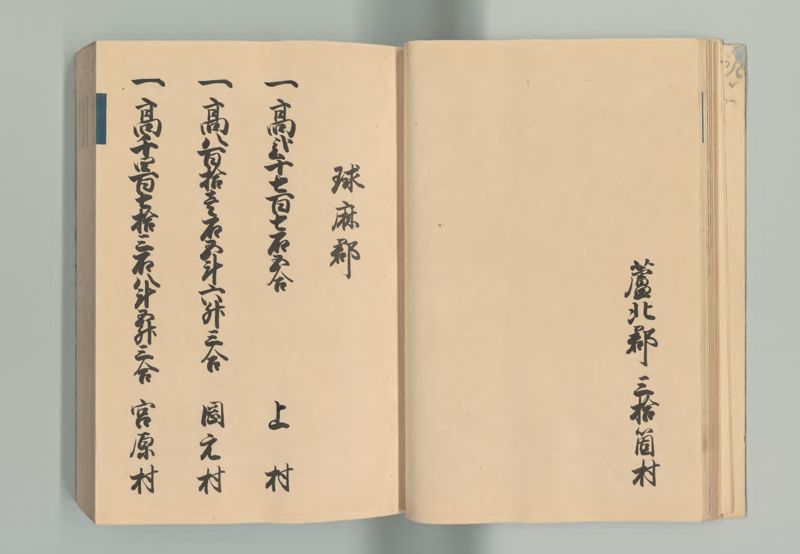 蘆北郡三拾箇村
球麻郡
一高弐千七百七石五合 上村
一高八百拾壱石五斗六升三合 岡元村
一高千四百七拾三石八斗五升三合 宮原村